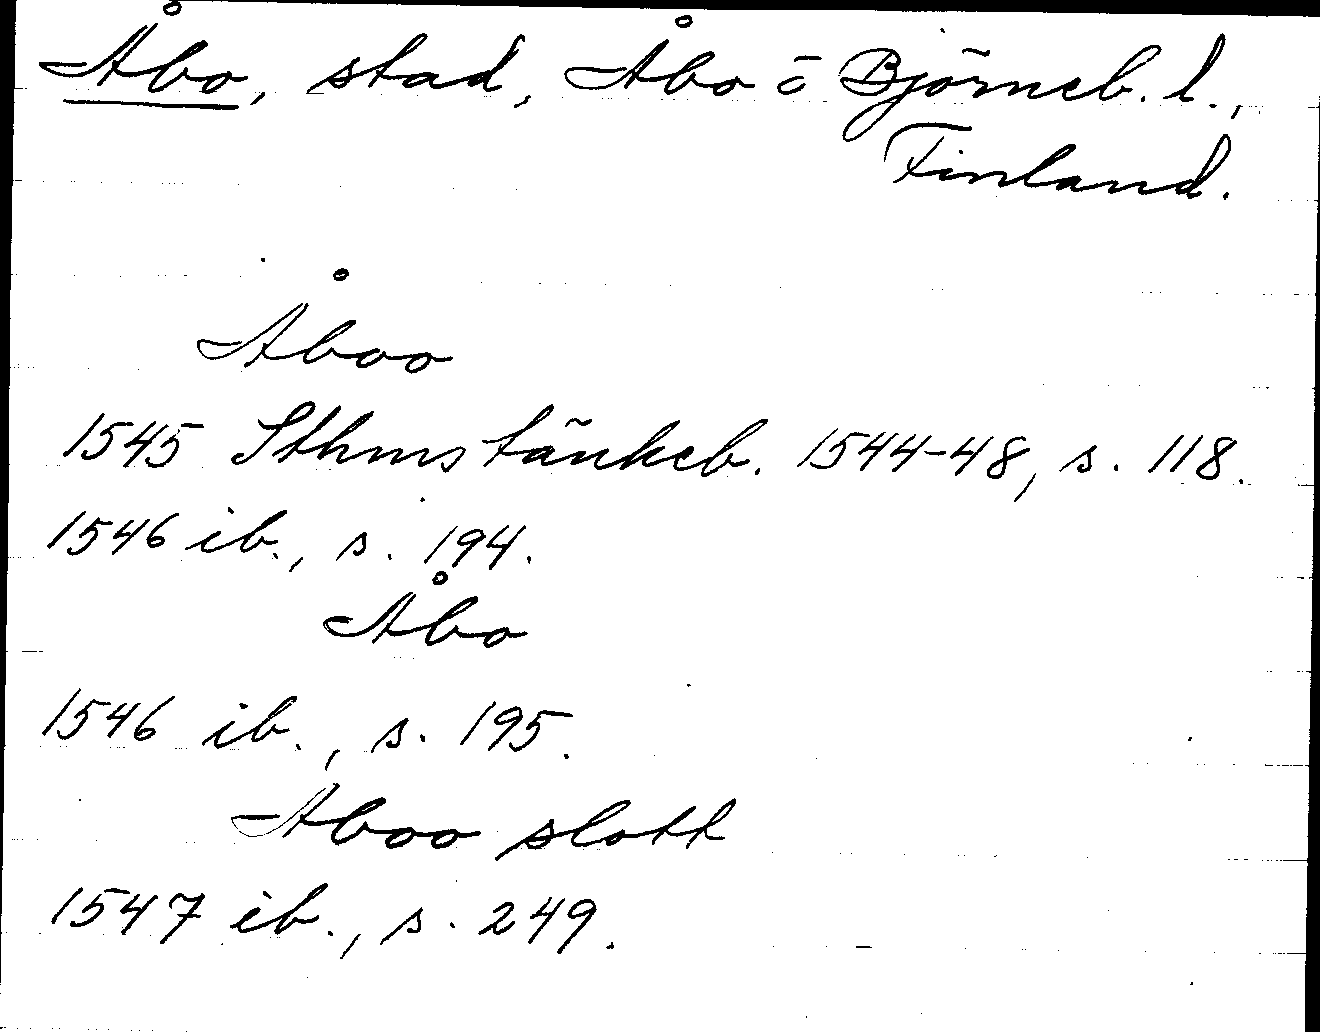 Åbo, stad, Åbo o Björneb. l.,
Finland.
Åboo
1545 Sthms tänkeb. 1544-48, s. 118.
1546 ib., s. 194.
Åbo
1546 ib., s. 195.
Aboo slott
1547 ib., s. 249.